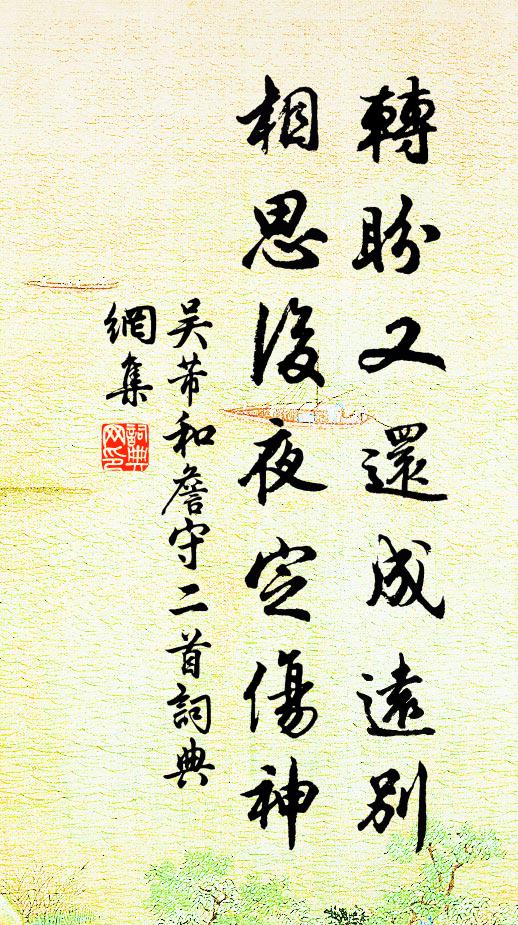 轉盼又還成遠別
相思後夜定傷神
吳芾和詹守二首詞典
網集
詞典
网印